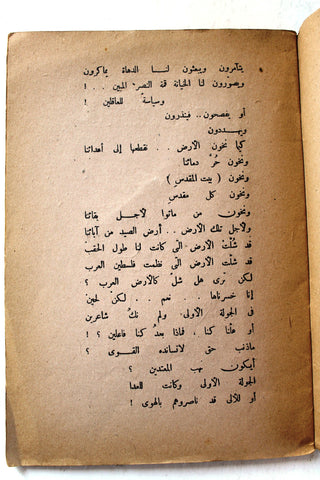 يتآمرون ويبعثون لنا الدهاة يماكرون
ويصورون لنا الخيانة قمة النصر المبين . . !
وسياسة للعاقلين !
أو يفصحون.. فينذرون
ويهددون
كيما نخون الأرض .. نقطعها إلى أعدائنا
ونخون حُرَّ دمائنا
ونخون ( بيت المقدس )
ونخون كل مقدس
ونخون من ماتوا لأجل بقائنا
ولأجل تلك الأرض.. أرض الصيد من آبائنا
قد شُلَّت الأرض التي كانت لنا طول الحقب
قد شلت الأرض التي نظمت فلسطين العرب
لكن ترى هل شُلَّ كالأرض العرب ؟
إنا خسرناها .. نعم .. لكن لحين
في الجولة الأولى ولم نكُ شاعرين
أو علّنا كنا ، فماذا بعدُ كنا فاعلين ؟ !
ماذنب حق لاتسانده القوى ؟
أيكون نهب المعتدين ؟
الجولة الأولى وكانت للعدا
أو للألى قد ناصروهم بالهوى !